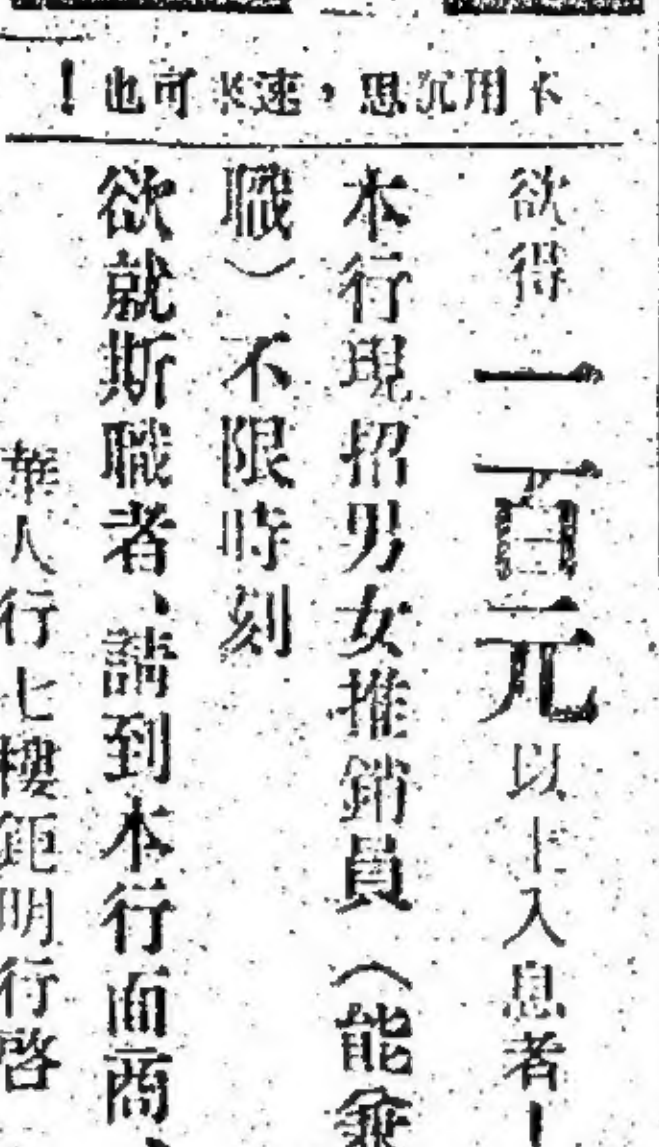 不用沉思，速來可也！
欲得一百元以上入息者！
本行現招男女推銷員（能兼
職）不限時刻
欲就斯職者、請到本行面商、
華人行七樓鉅明行啓